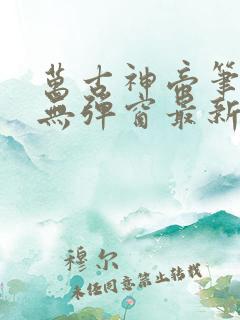 萬古神帝筆
無彈窗最新
穆尔
未经同意禁止转载